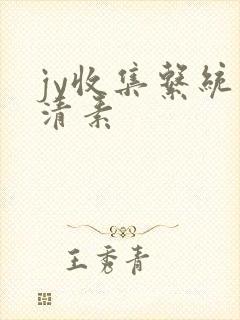 jy收集繫統
清素
王秀青